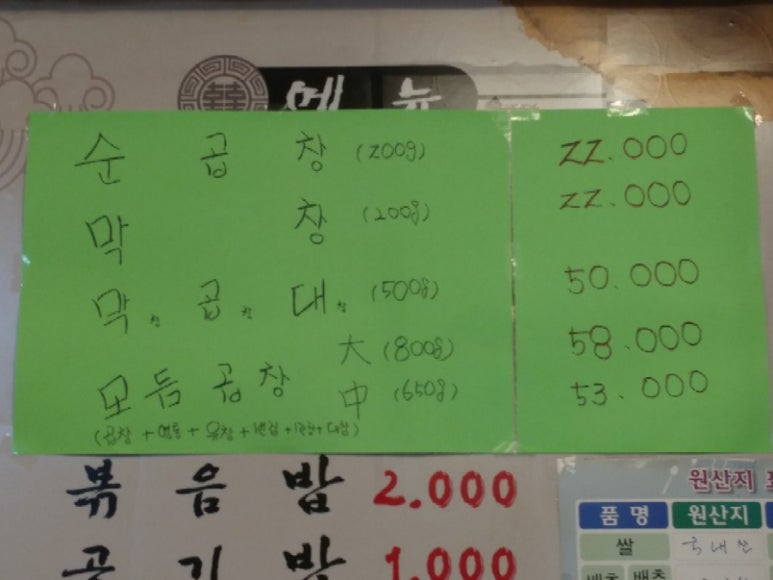 메뉴
순 곱 창 (200g) 22.000
막 창 (200g) 22.000
막.창 곱.창 대.창 (500g) 50.000
大 (800g) 58.000
모듬곱창 中 (650g) 53.000
(곱창 + 염통 + 유창 + 벌집 + 막창 + 대창)
볶 음 밥 2.000
공 기 밥 1.000
원산지 표
품 명 원산지
쌀 국내산
배추 배추